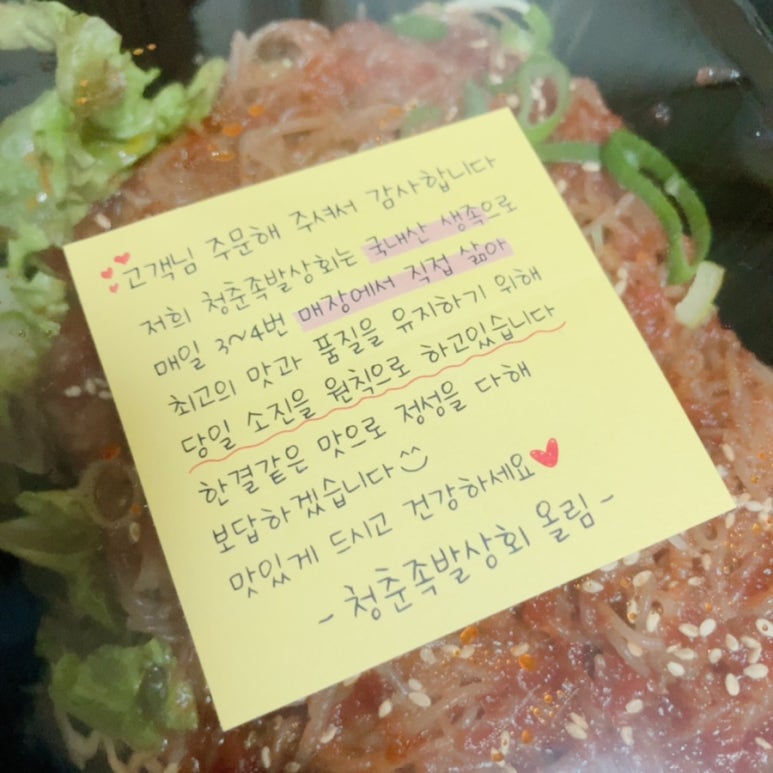 고객님 주문해 주셔서 감사합니다
저희 청춘족발상회는 국내산 생족으로
매일 3~4번 매장에서 직접 삶아
최고의 맛과 품질을 유지하기 위해
당일 소진을 원칙으로 하고있습니다
한결같은 맛으로 정성을 다해
보답하겠습니다
맛있게 드시고 건강하세요
- 청춘족발상회 올림 -